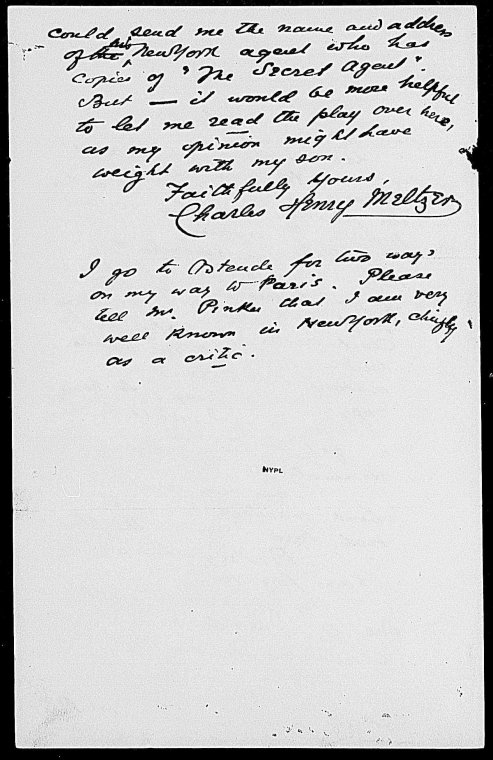 could send me the name and address
of his New York agent who has
copies of "The Secret Agent".
But — it would be more helpful
to let me read the play over here,
as my opinion might have
weight with my son.
Faithfully Yours,
Charles Henry Meltzer
I go to Ostende for two days
on my way to Paris. Please
tell Mr. Pinker that I am very
well known in New York, chiefly
as a critic.
NYPL